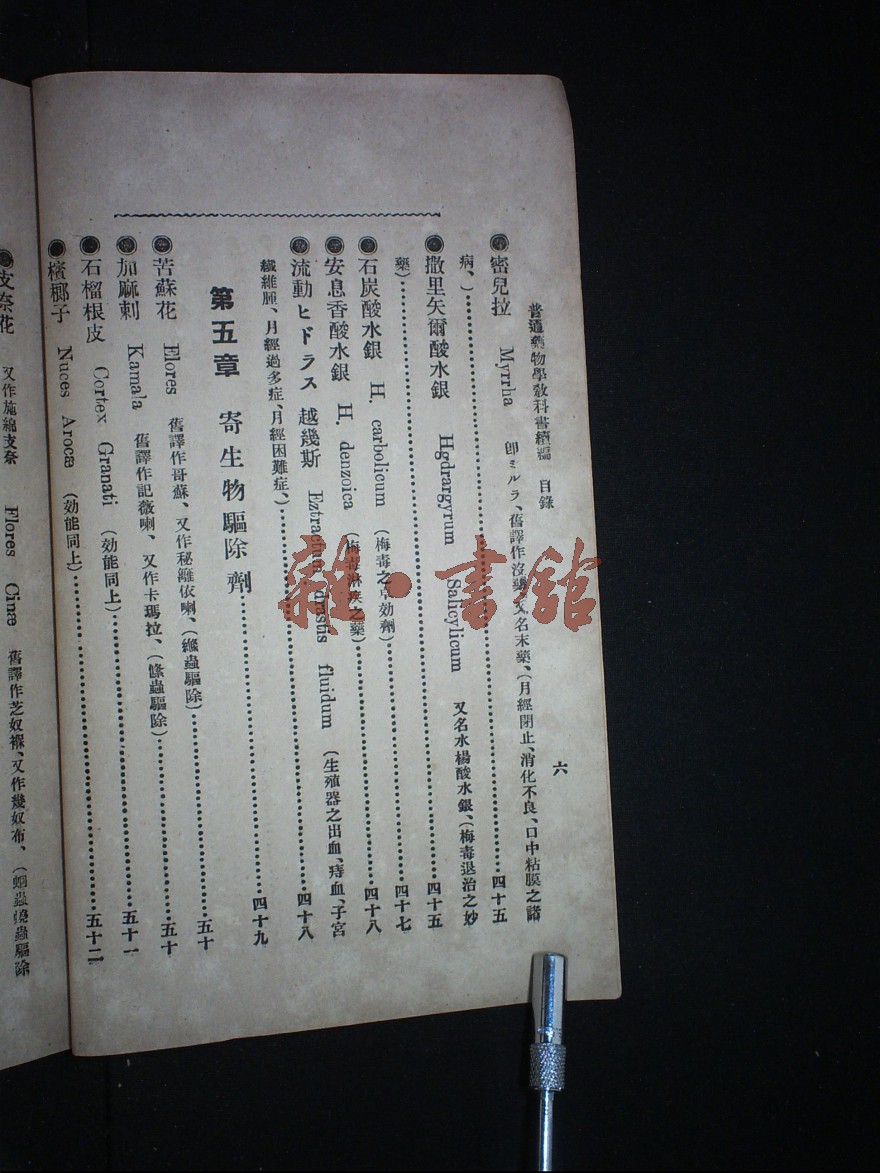 普通藥物學教科書續編　目錄　六
●密兒拉　Myrrha　卽ミルラ、舊譯作沒藥、又名末藥、(月經閉止、消化不良、口中粘膜之諸
病、)……四十五
●撒里矢爾酸水銀　Hgdrargyrum Salicylicum　又名水楊酸水銀、(梅毒退治之妙
藥)……四十五
●石炭酸水銀　H. carbolicum　(梅毒之卓効劑)……四十七
●安息香酸水銀　H. denzoica　(梅毒淋疾之藥)……四十八
●流動ヒドラス越幾斯　Eztractum drastis fluidum　(生殖器之出血、痔血、子宮
纖維腫、月經過多症、月經困難症、)……四十八
第五章　寄生物驅除劑……四十九
●苦蘇花　Elores　舊譯作哥蘇、又作秘離依喇、(縧蟲驅除)……五十
●加麻剌　Kamala　舊譯作記薇喇、又作卡瑪拉、(條蟲驅除)……五十
●石榴根皮　Cortex Granati　(効能同上)……五十一
●檳榔子　Nuces Arocæ　(効能同上)……五十二
●支奈花　又作施綿支奈　Flores Cinæ　舊譯作芝奴褓、又作幾奴布、(蛔蟲蟯蟲驅除
雜·書館